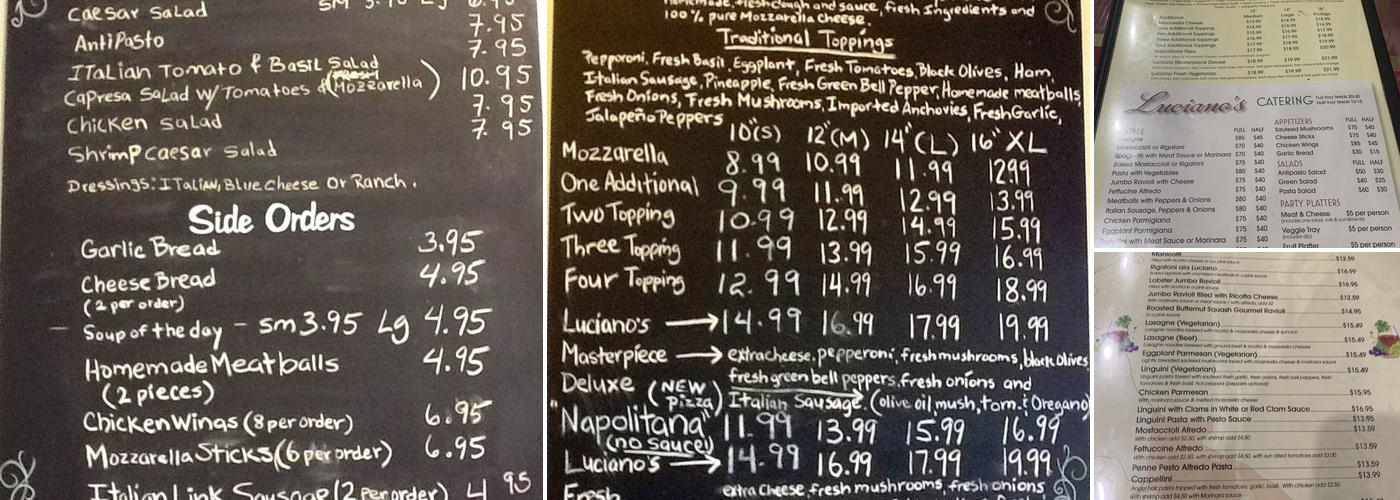 Caesar Salad
7.95
AntiPasto
7.95
Italian Tomato & Basil Salad
10.95
Capresa Salad w/ Tomatoes & (Fresh Mozzarella)
7.95
Chicken Salad
7.95
Shrimp Caesar Salad
Dressings: Italian, Blue Cheese Or Ranch.
Side Orders
Garlic Bread 3.95
Cheese Bread 4.95
(2 per order)
Soup of the day - sm 3.95 Lg 4.95
Homemade Meatballs 4.95
(2 pieces)
Chicken Wings (8 per order) 6.95
Mozzarella Sticks (6 per order) 6.95
Italian Link Sausage (2 per order) 4.95
Homemade, fresh dough and sauce, fresh Ingredients and
100% pure Mozzarella Cheese.
Traditional Toppings
Pepperoni, Fresh Basil, Eggplant, Fresh Tomatoes, Black Olives, Ham,
Italian Sausage, Pineapple, Fresh Green Bell Pepper, Homemade meatballs,
Fresh Onions, Fresh Mushrooms, Imported Anchovies, Fresh Garlic,
Jalapeño Peppers
10"(S) 12"(M) 14"(L) 16" XL
Mozzarella 8.99 10.99 11.99 1299
One Additional 9.99 11.99 12.99 13.99
Two Topping 10.99 12.99 14.99 15.99
Three Topping 11.99 13.99 15.99 16.99
Four Topping 12.99 14.99 16.99 18.99
Luciano's → 14.99 16.99 17.99 19.99
Masterpiece → extra cheese, pepperoni, fresh mushrooms, black olives
Deluxe fresh green bell peppers, fresh onions and
(NEW Pizza) Italian Sausage. (olive oil, mush, tom. & Oregano)
"Napolitana" 11.99 13.99 15.99 16.99
(no sauce)
Luciano's → 14.99 16.99 17.99 19.99
Fresh extra cheese, fresh mushrooms, fresh onions
12" 14" 16"
Medium Large X-Large
Traditional
Mozzarella Cheese
One Additional Topping
Two Additional Toppings
Three Additional Toppings
Four Additional Toppings
Napolitana Pizza
Luciano Masterpiece Deluxe $18.99 $19.99 $21.99
Luciano Fresh Vegetarian $18.99 $19.99 $21.99
Luciano's CATERING
Full tray feeds 20-30
Half tray feeds 10-15
FULL HALF
$85 $45
Mostaccioli or Rigatoni $70 $40
Spaghetti with Meat Sauce or Marinara $70 $40
Baked Mostaccioli or Rigatoni $75 $40
Pasta with Vegetables $80 $40
Jumbo Ravioli with Cheese $75 $40
Fettucine Alfredo $75 $40
Meatballs with Peppers & Onions $80 $40
Italian Sausage, Peppers & Onions $80 $40
Chicken Parmigiana $75 $40
Eggplant Parmigiana $75 $40
with Meat Sauce or Marinara $75 $40
APPETIZERS FULL HALF
Sauteed Mushrooms $75 $40
Cheese Sticks $75 $40
Chicken Wings $85 $45
Garlic Bread $30 $15
SALADS FULL HALF
Antipasto Salad $50 $30
Green Salad $40 $25
Pasta Salad $60 $30
PARTY PLATTERS
Meat & Cheese $5 per person
(includes one salad, rolls & condiments)
Veggie Tray $5 per person
(includes dip)
Fruit Platter $5 per person
Manicotti $12.59
Filled with ricotta cheese in our pink sauce
Rigatoni ala Luciano $16.99
Lobster Jumbo Ravioli $16.95
Filled with ricotta in a pink sauce
Jumbo Ravioli filled with Ricotta Cheese $12.59
Roasted Butternut Squash Gourmet Ravioli $14.95
in a pink sauce
Lasagne (Vegetarian) $15.49
Lasagne noodles layered with ricotta & mozzarella cheese & spinach
Lasagna (Beef) $15.49
Lasagne noodles layered with ground beef & ricotta & mozzarella cheese
Eggplant Parmesan (Vegetarian) $15.49
Lightly breaded sauteed mushrooms toped with mozzarella cheese & marinara sauce
Linguini (Vegetarian) $15.49
Linguini pasta tossed with sauteed fresh garlic, fresh onions, fresh bell peppers, fresh
tomatoes & fresh basil, hot peppers (peppers optional)
Chicken Parmesan $15.95
With marinara sauce & melted mozzarella cheese
Linguini with Clams in White or Red Clam Sauce $16.95
Linguini Pasta with Pesto Sauce $13.95
Mostaccoli Alfredo $13.59
With chicken add $2.50, with shrimp add $4.50
Fettuccine Alfredo $13.59
With chicken add $2.50, with shrimp add $4.50, with sun dried tomatoes add $3.00
Penne Posto Alfredo Pasta $13.59
Cappellini $13.99
Angel hair pasta topped with fresh tomatoes, garlic, basil. With chicken add $2.50,
with shrimp add $4.50 with Marinara sauce